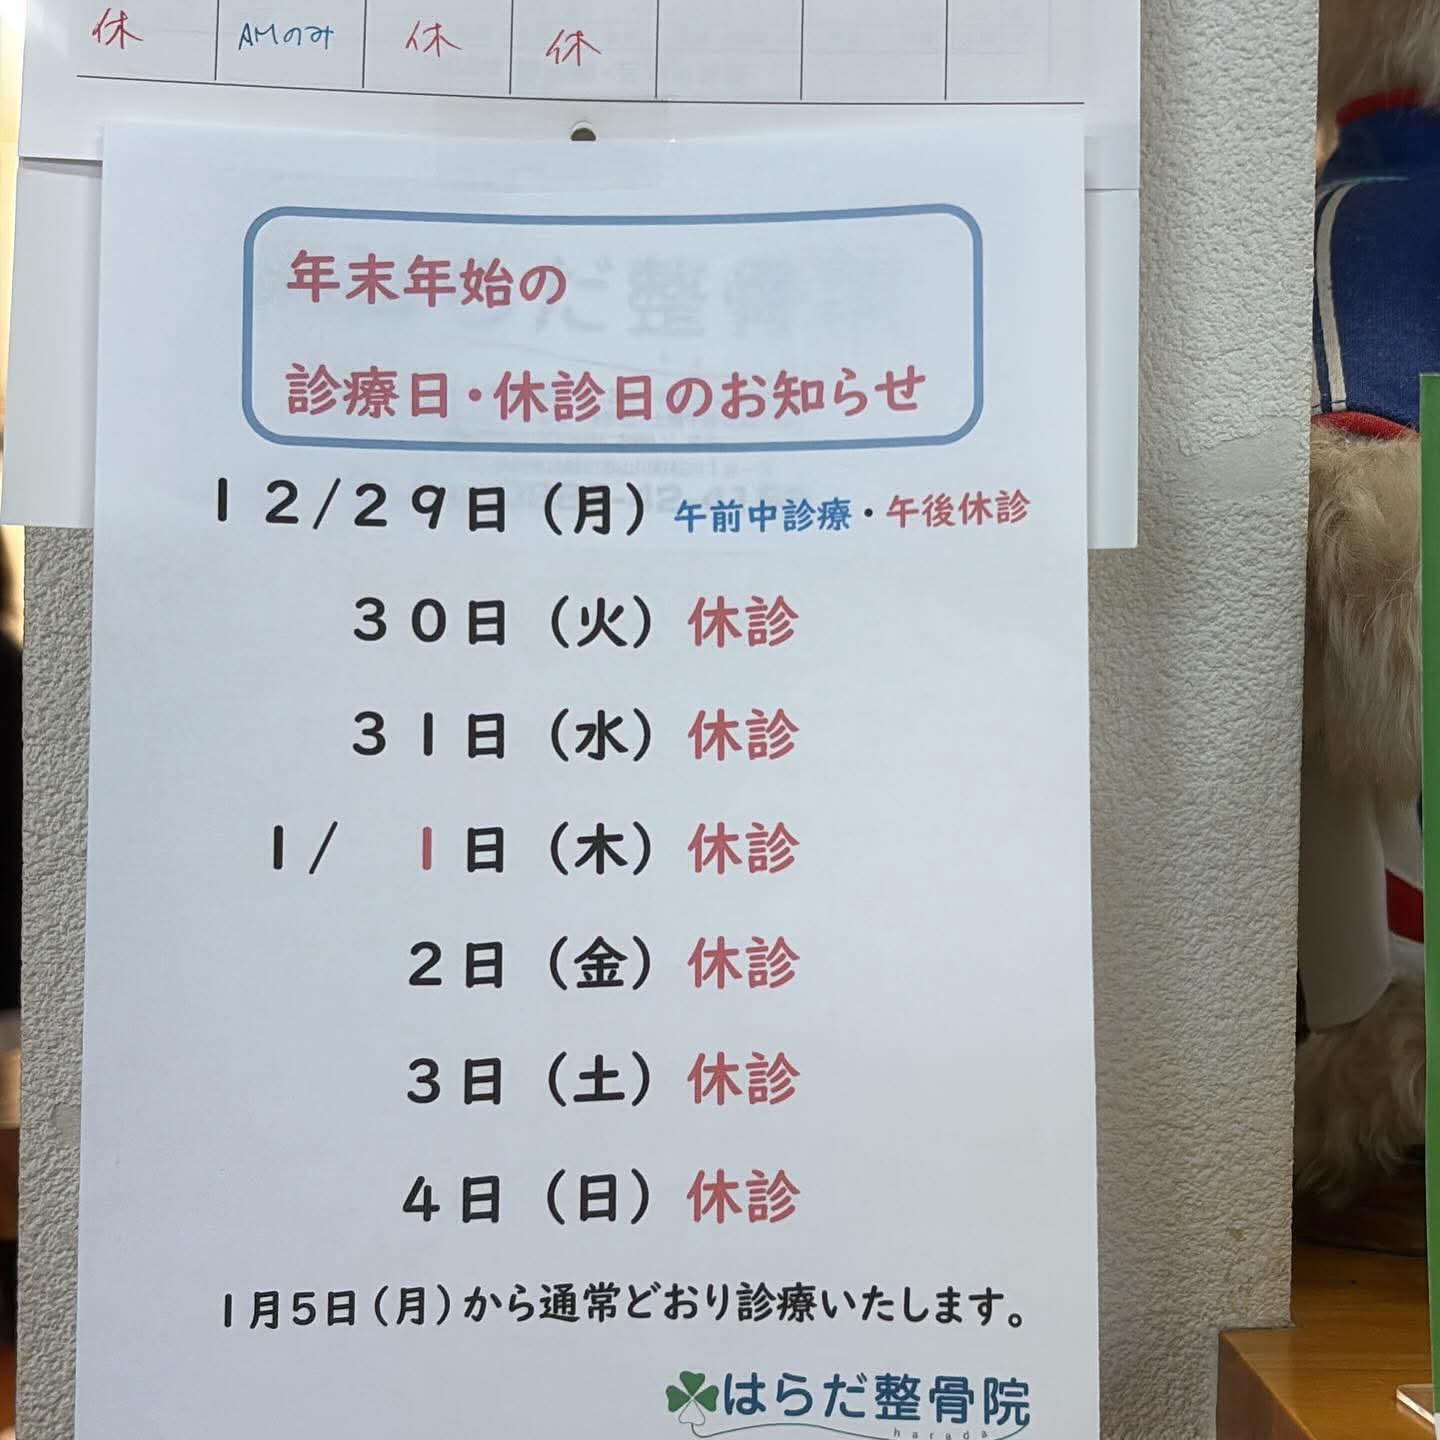 休 AMのみ 休 休
年末年始の
診療日・休診日のお知らせ
12/29日(月)午前中診療・午後休診
30日(火)休診
31日(水)休診
1/ 1日(木)休診
2日(金)休診
3日(土)休診
4日(日)休診
1月5日(月)から通常どおり診療いたします。
はらだ整骨院
harada